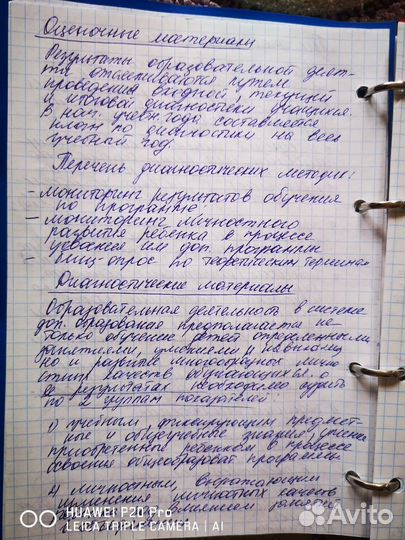 Оценочные материалы
Результаты образовательной деят-
ти отслеживаются путем
проведения входной, текущей
и итоговой диагностики учащихся.
В нач. учебн. года составляется
план по диагностики на весь
учебный год.
Перечень диагностических методик:
- Мониторинг результатов обучения
по программе
- мониторинг личностного
развития ребенка в процессе
им доп. программы
- опрос по теоретическим терминам
Диагностические материалы
Образовательная деятельность в системе
доп. образования предполагает не
только обучение детей определенными
занятиями, умениями и навыками,
но и развитие многообразных личн
качеств обучающихся. О
результатах необходимо судить
по 2 группам показателей:
1) учебным фиксирующим предмет-
ные и общеучебные знания, умения
приобретенные ребенком в процессе
освоения программы
личностным, выражающим
изменения личностных качеств
влиянием занятий
HUAWEI P20 Pro
LEICA TRIPLE CAMERA | AI
Avito